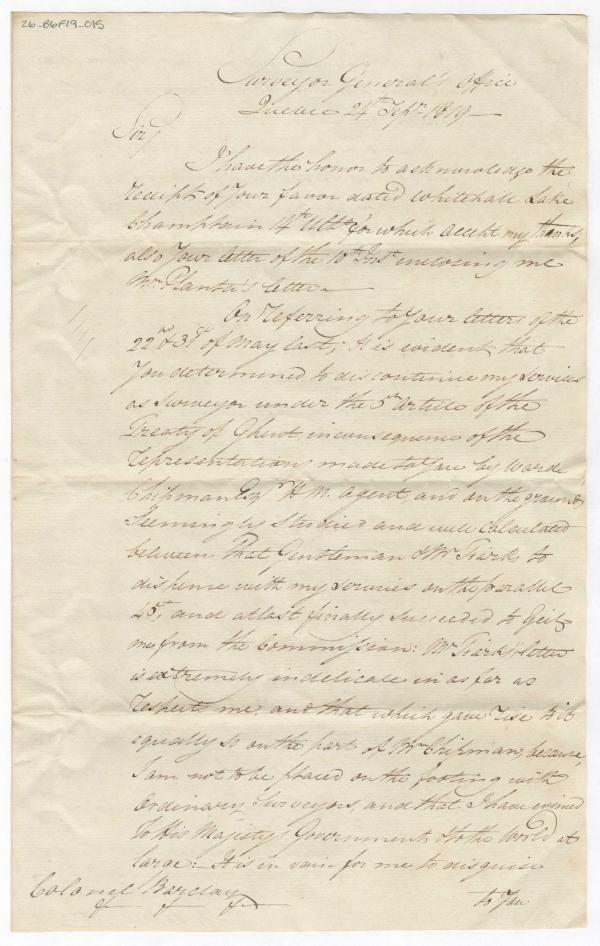 26-B6F19-015
Surveyor General's Office
Quebec 24th Septr. 1819 —
Sir,
I have the honor to acknowledge the
receipt of Your favor dated Whitehall Lake
Champlain 14th Ulto. for which accept my thanks,
also Your letter of the 10th Inst. enclosing me
Mr. Planta's letter —
On referring to Your letters of the
22nd & 31st of May last; It is evident that
You determined to discontinue my Services
as Surveyor under the 5th Article of the
Treaty of Ghent, in consequence of the
representations made to You by Ward
Chipman Esqr. H. M. Agent and on the grounds
Seemingly Studied and well Calculated
between that Gentleman & Mr. Tiarks to
dispense with my Services on the parallel
45°, and at last finally Succeeded to
me from the Commission: Mr. Tiarks's letter
is extremely indelicate in as far as
respects me, and that which gave rise to it
equally so on the part of Mr. Chipman, because,
I am not to be placed on the footing with
Ordinary Surveyors, and that I have evinced
To His Majesty's Government & to the World at
large: — It is in vain for me to disguise
Colonel Barclay
to You